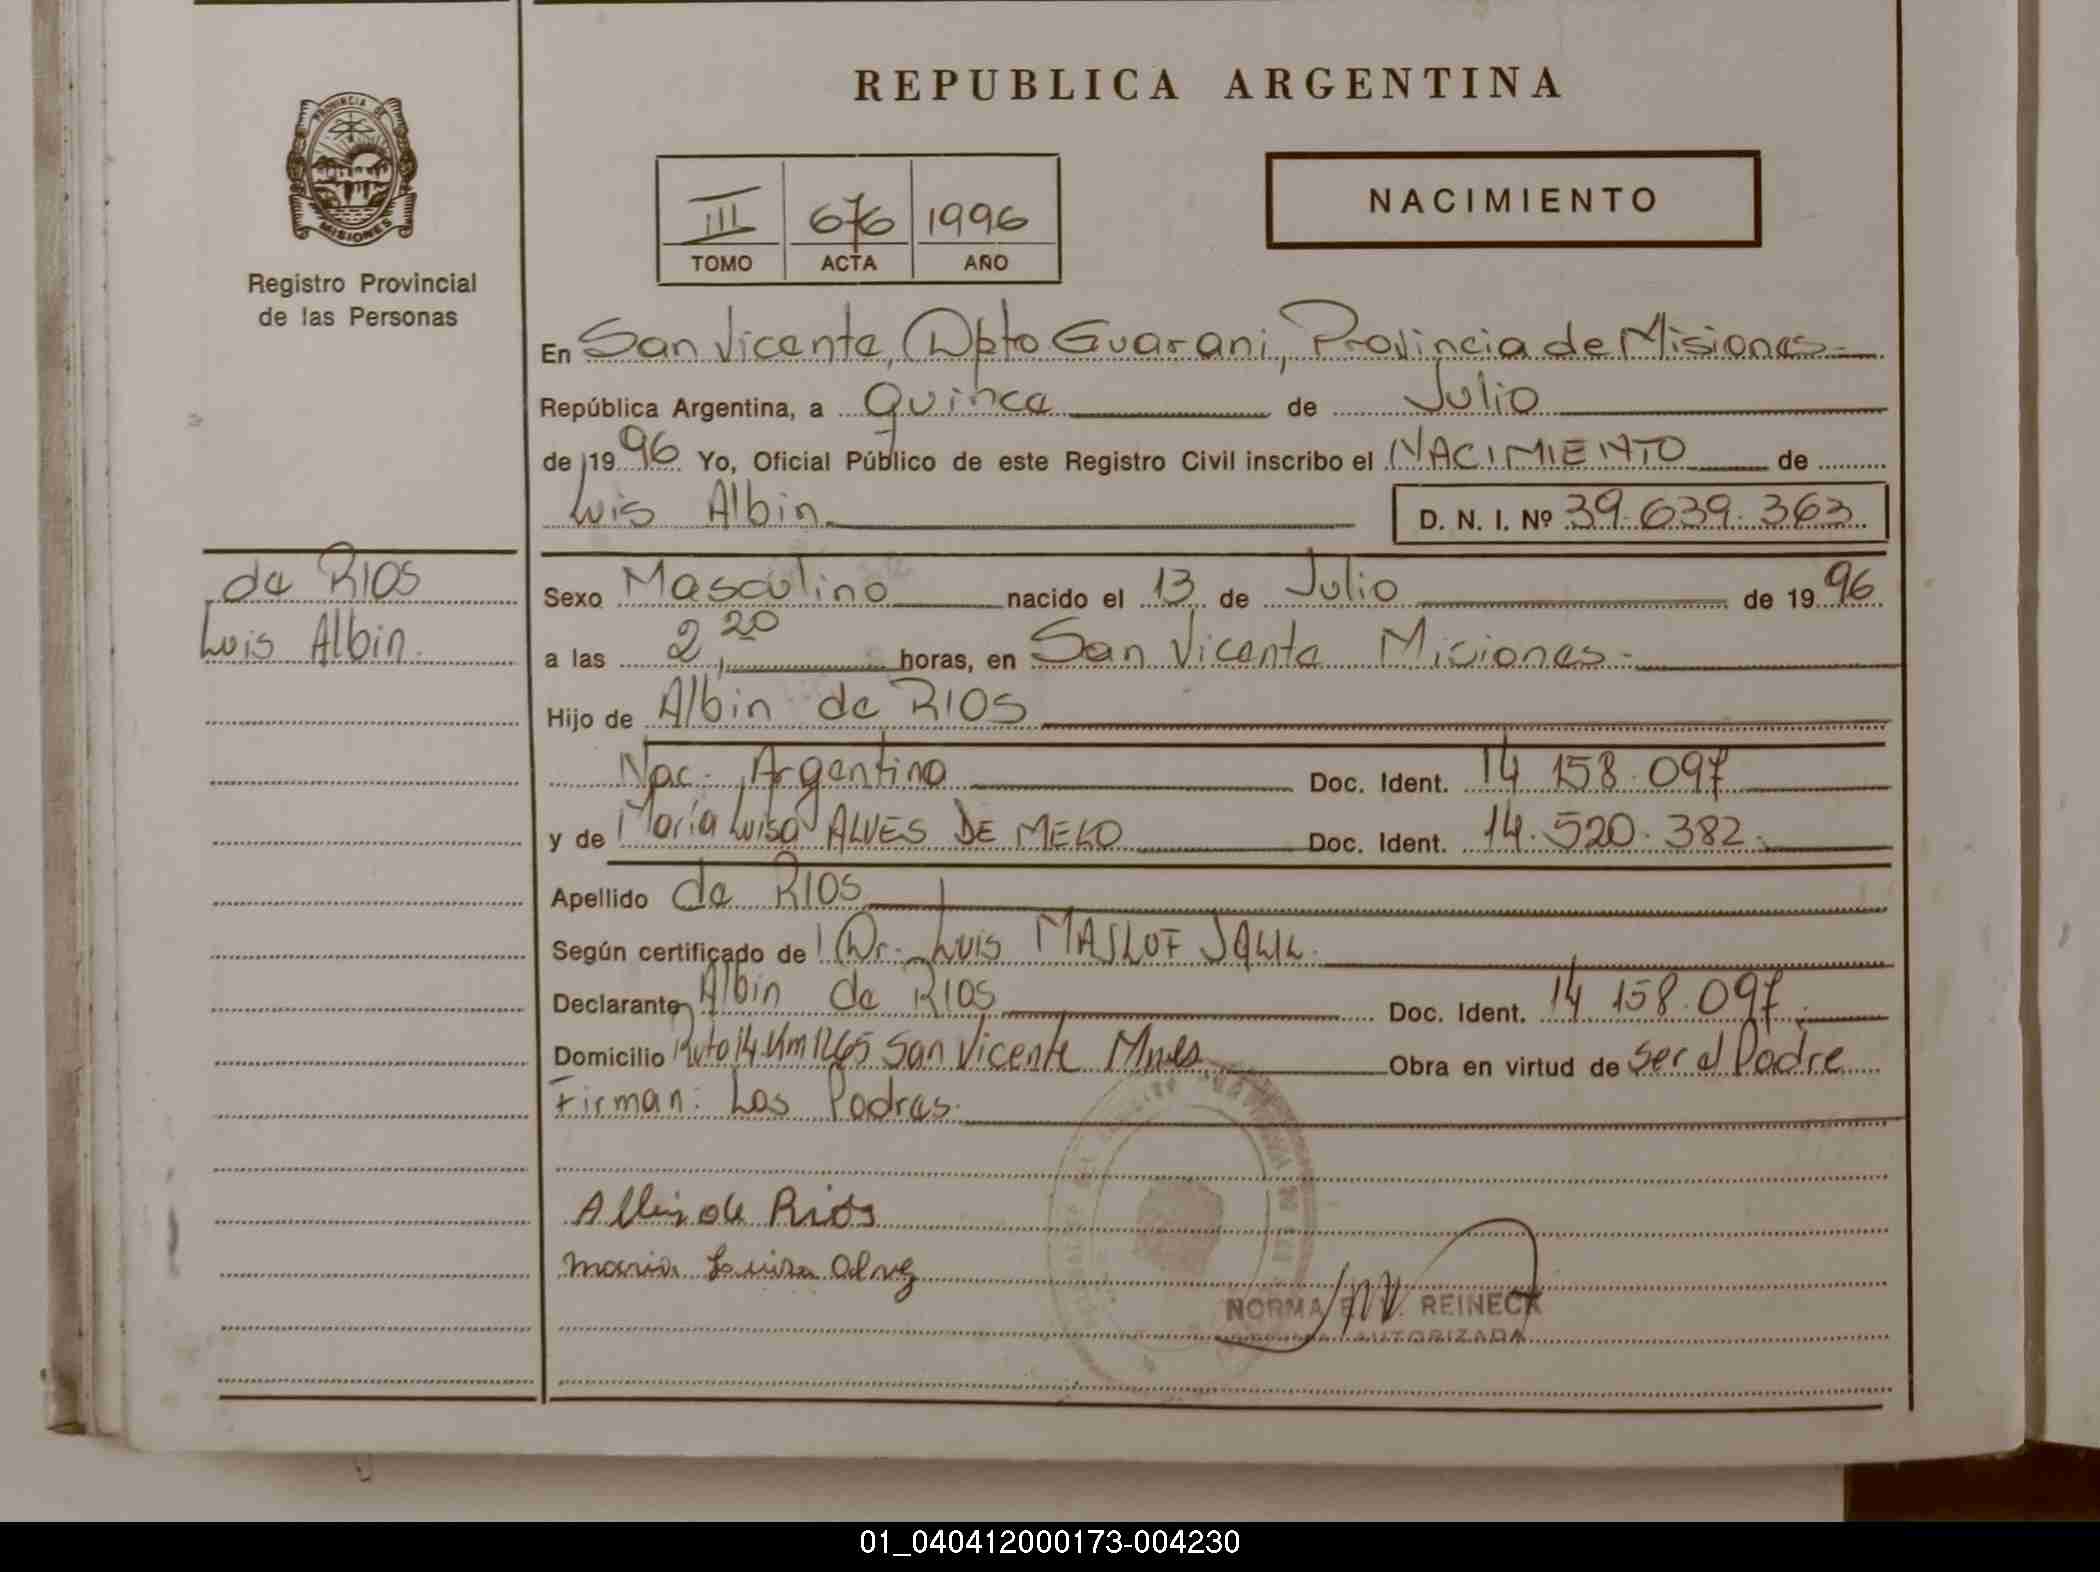 REPUBLICA ARGENTINA
PROVINCIA DE
MISIONES
Registro Provincial
de las Personas
III 676 1996
TOMO ACTA AÑO
NACIMIENTO
En San Vicente, Dpto Guarani, Provincia de Misiones
República Argentina, a Quince de Julio
de 1996 Yo, Oficial Público de este Registro Civil inscribo el NACIMIENTO de
Luis Albin D. N. I. Nº 39.639.363
de RIOS
Luis Albin.
Sexo Masculino nacido el 13 de Julio de 1996
a las 2,20 horas, en San Vicente Misiones.
Hijo de Albin de RIOS
Nac. Argentino Doc. Ident. 14 158.097
y de María Luisa ALVES DE MELO Doc. Ident. 14.520.382.
Apellido de RIOS
Según certificado de Dr. Luis
Declarante Albin de RIOS Doc. Ident. 14 158.097
Domicilio Ruta 14 Km 1265 San Vicente Mnes Obra en virtud de ser el Padre
Firman: Los Padres.
Albin de Rios
maria Luisa Alvez
NORMA REINECK
AUTORIZADA
01_040412000173-004230